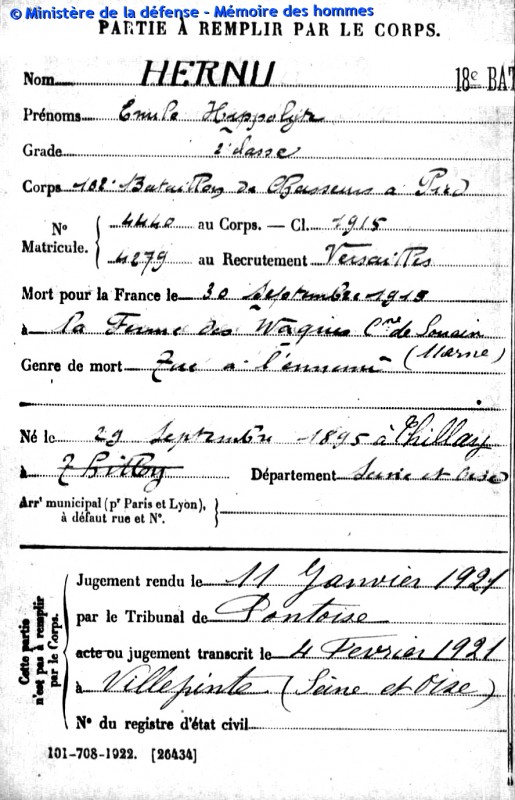 © Ministère de la défense - Mémoire des hommes
PARTIE À REMPLIR PAR LE CORPS.
Nom HERNU 18e BAT
Prénoms Emile Hyppolyte
Grade 2e classe
Corps 102e Bataillon de Chasseurs à Pied
N° Matricule. { 4440 au Corps. — Cl. 1915
4279 au Recrutement Versailles
Mort pour la France le 30 Septembre 1915
à la Ferme des Waques Cne de Souain
(Marne)
Genre de mort Tué à l'ennemi
Né le 29 Septembre 1895 à Thillay
à Département Seine et Oise
Arrt municipal (pr Paris et Lyon), à défaut rue et N°. }
Cette partie n'est pas à remplir par le Corps.
Jugement rendu le 11 Janvier 1921
par le Tribunal de Pontoise
acte ou jugement transcrit le 4 Février 1921
à Villepinte (Seine et Oise)
N° du registre d'état civil
101-708-1922. [26434]